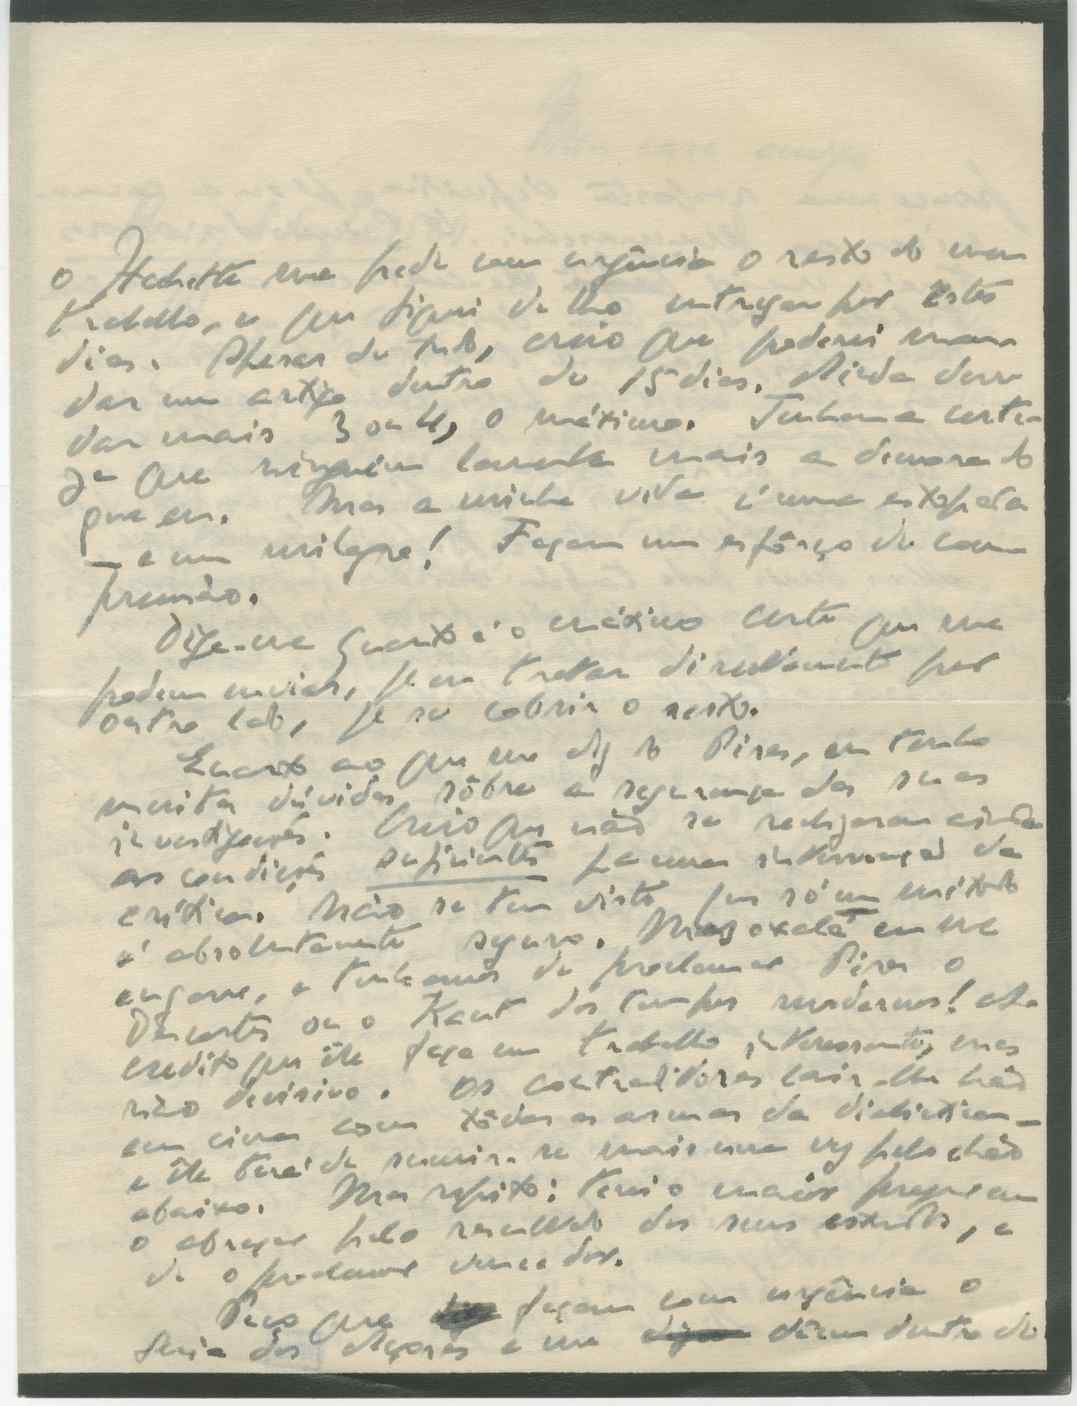 o Hachette me pede com urgência o resto do meu
trabalho, e que fiquei de lho entregar por êstes
dias. Apesar de tudo, creio que poderei man-
dar um artigo dentro de 15 dias. Ainda devo
dar mais 3 ou 4, o máximo. Tenham a certe-
za que ninguém lamenta mais a demora do
que eu. Mas a minha vida é uma estafada
— e um milagre! Façam um esfôrço de com-
preensão.
Diga-me quanto é o máximo certo que me
podem enviar, para eu tratar directamente por
outro lado, para se cobrir o resto.
Quanto ao que me diz do Pires, eu tenho
muitas dúvidas sôbre a segurança das suas
investigações. Creio que não se realizaram ainda
as condições suficientes para uma intervenção da
crítica. Não se tem visto que só um método
é absolutamente seguro. Mas oxalá eu me
engane, e tenhamos de proclamar Pires o
Descartes ou o Kant dos tempos modernos! A-
credito que êle faça um trabalho interessante, mas
não decisivo. Os contraditores cair-lhe-hão
em cima com tôdas as armas da dialéctica —
e êle terá de sumir-se mais uma vez pelo chão
abaixo. Mas repito: terei o maior prazer em
o abraçar pelo resultado dos seus estudos, e
de o proclamar vencedor.
Peço que façam com urgência o
dos Açores e me dêem dentro de